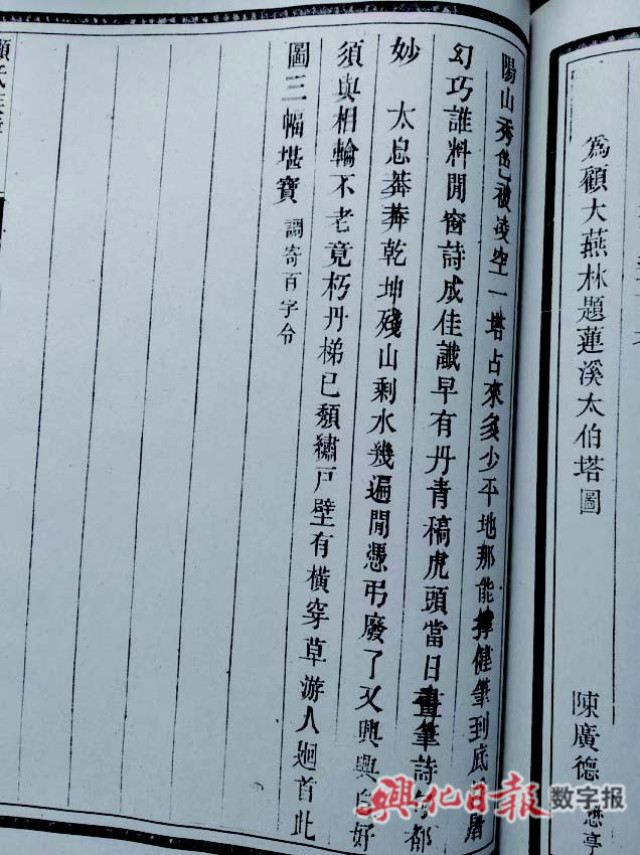 為顧大燕林題蓮溪太伯塔圖
陳廣德 懋亭
陽山秀色被凌空一塔占來多少平地那能撐健筆到底
幻巧誰料閒窗詩成佳讖早有丹青稿虎頭當日畫筆詩
都
妙 太息莽莽乾坤殘山剩水幾遍閒憑弔廢了又興興
好
須與相輪不老竟朽丹梯已頹繡戶壁有橫穿草游人廻首此
圖三幅堪寶 調寄百字令
興化日報 数字报